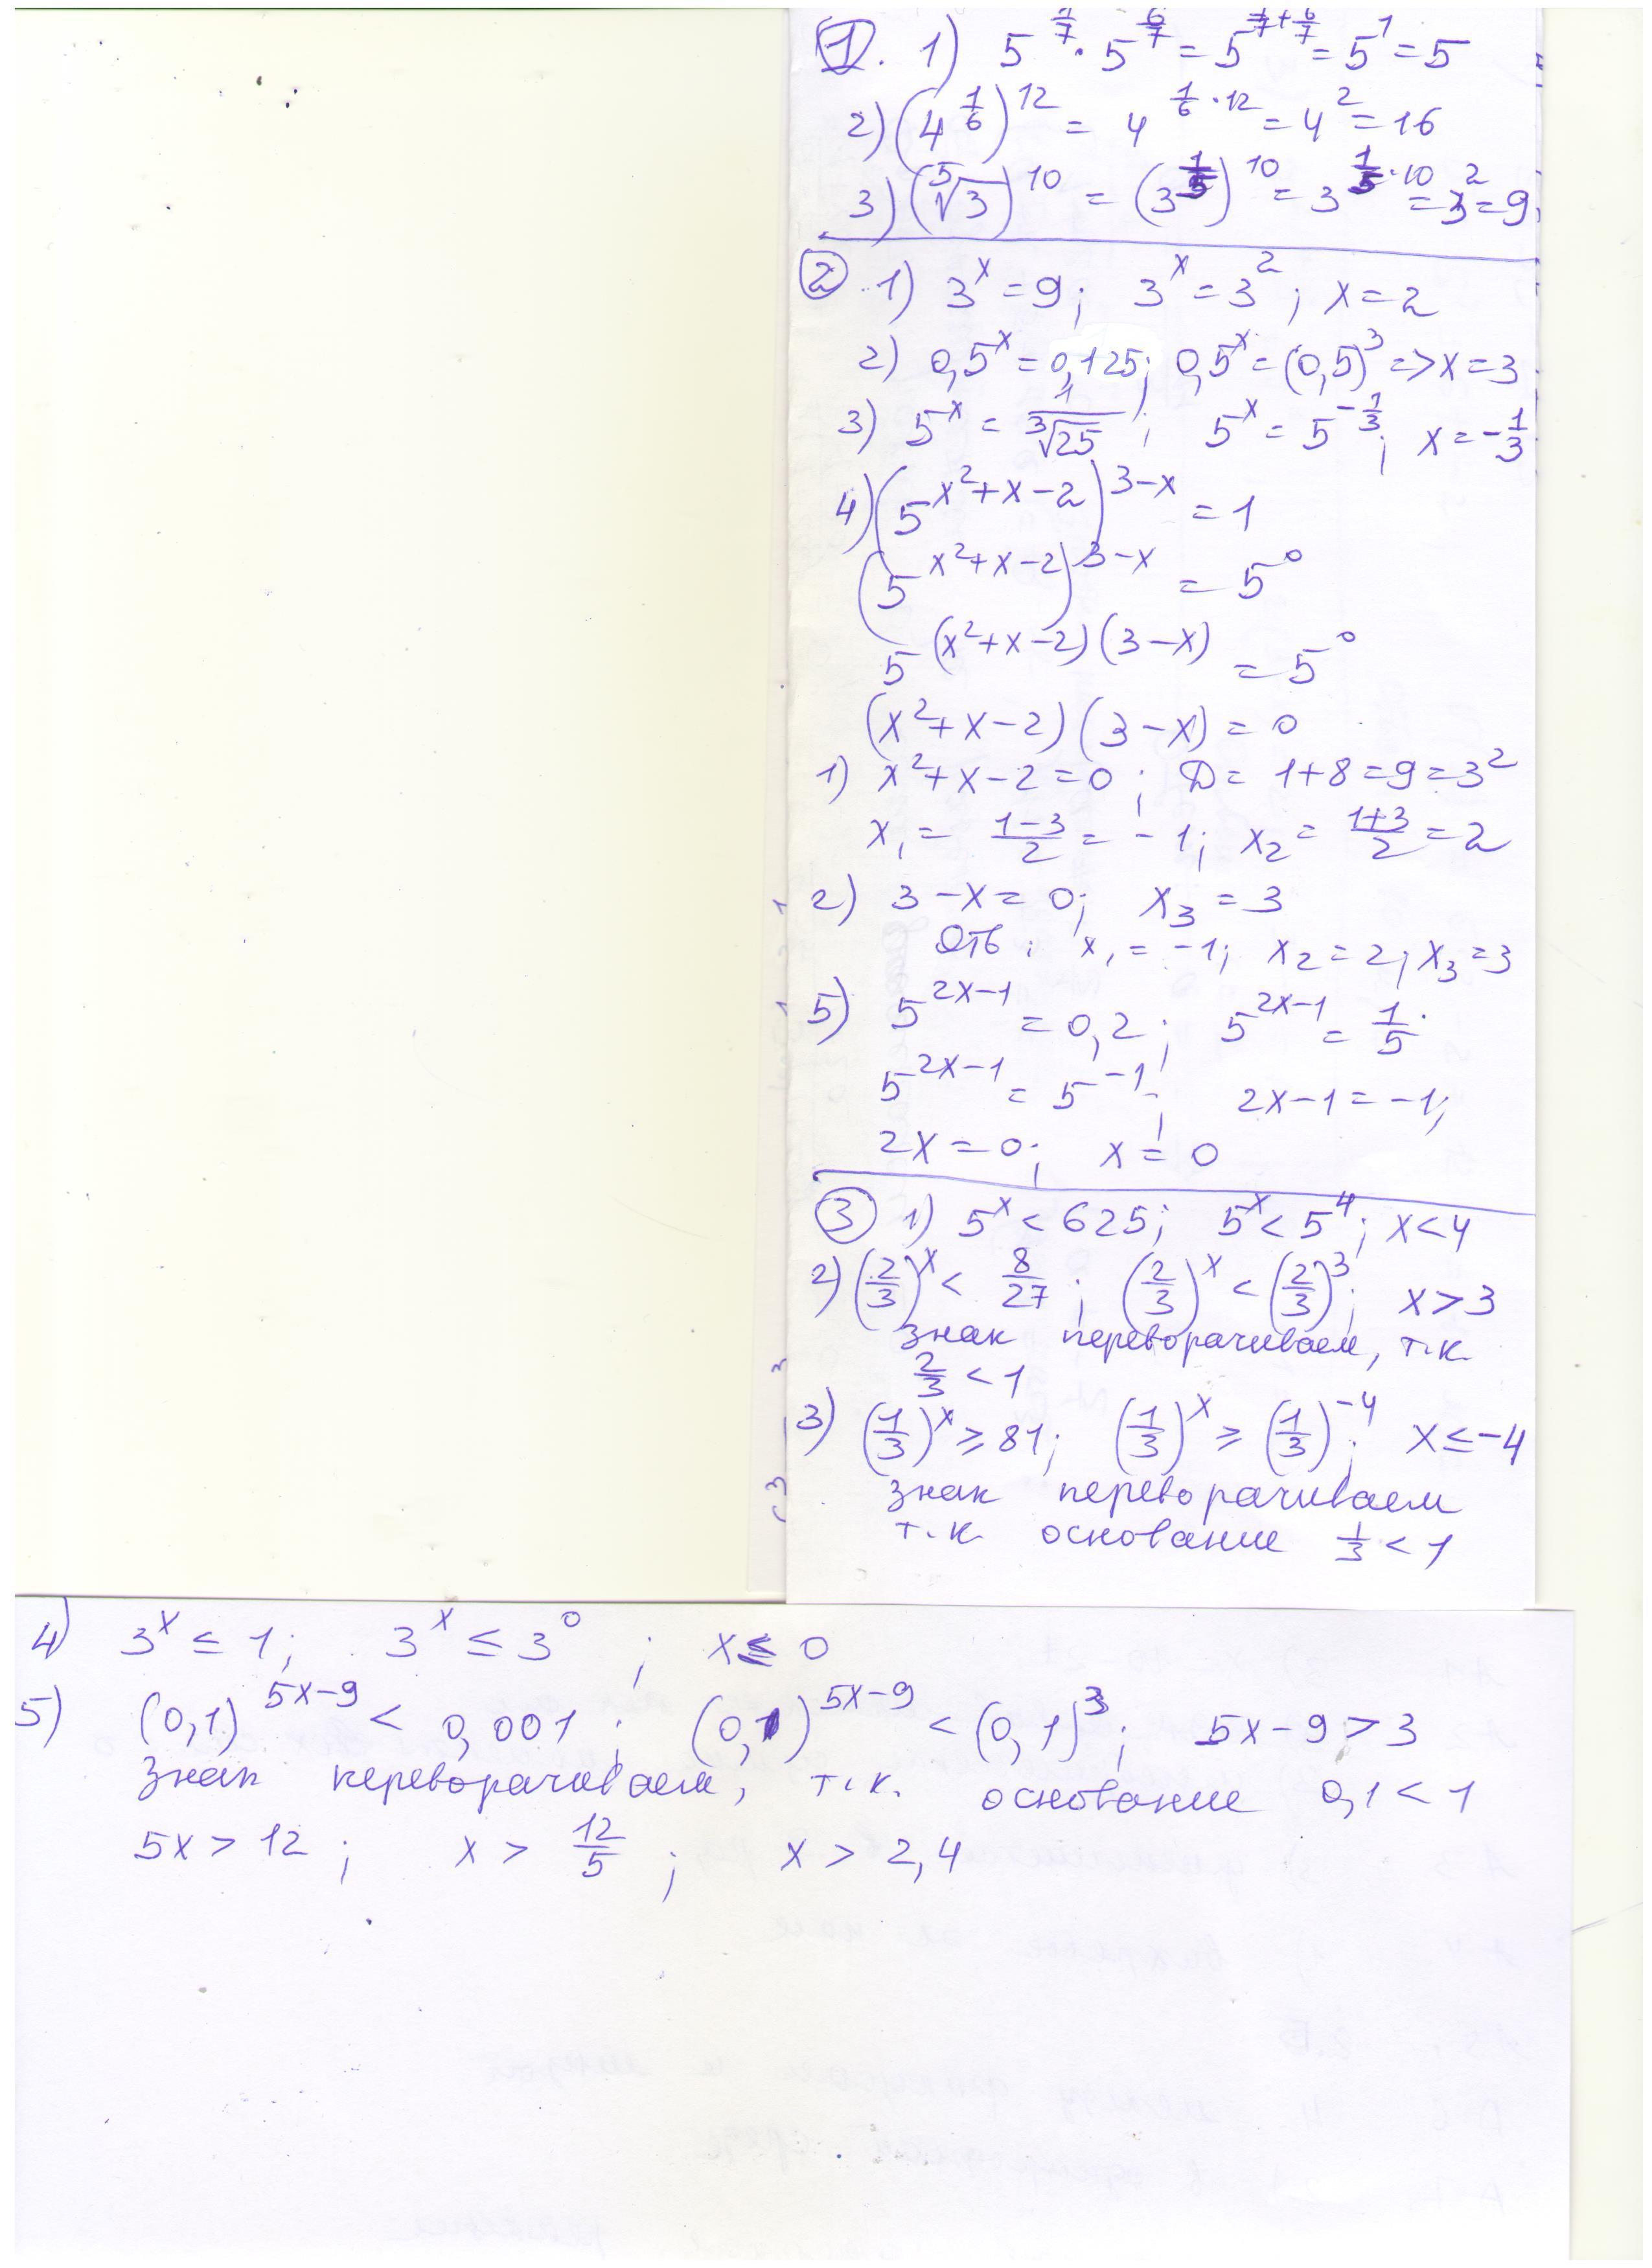 1. 1) 5^(1/7) · 5^(6/7) = 5^(1/7+6/7) = 5^1 = 5
2) (4^(1/6))^12 = 4^(1/6·12) = 4^2 = 16
3) (⁵√3)^10 = (3^(1/5))^10 = 3^(1/5·10) = 3^2 = 9
2. 1) 3^x = 9; 3^x = 3^2; x = 2
2) 0,5^x = 0,125; 0,5^x = (0,5)^3 => x = 3
3) 5^x = 1/³√25; 5^x = 5^(-1/3); x = -1/3
4) (5^(x²+x-2))^(3-x) = 1
(5^(x²+x-2))^(3-x) = 5^0
5^((x²+x-2)(3-x)) = 5^0
(x²+x-2)(3-x) = 0
1) x²+x-2 = 0; D = 1+8 = 9 = 3²
x₁ = (1-3)/2 = -1; x₂ = (1+3)/2 = 2
2) 3-x = 0; x₃ = 3
Отв: x₁ = -1; x₂ = 2; x₃ = 3
5) 5^(2x-1) = 0,2; 5^(2x-1) = 1/5.
5^(2x-1) = 5^(-1); 2x-1 = -1;
2x = 0; x = 0
3 1) 5^x < 625; 5^x < 5^4; x < 4
2) (2/3)^x < 8/27; (2/3)^x < (2/3)^3; x > 3
знак переворачиваем, т.к.
2/3 < 1
3) (1/3)^x ≥ 81; (1/3)^x ≥ (1/3)^(-4); x ≤ -4
знак переворачиваем
т.к основание 1/3 < 1
4) 3^x ≤ 1; 3^x ≤ 3^0; x ≤ 0
5) (0,1)^(5x-9) < 0,001; (0,1)^(5x-9) < (0,1)^3; 5x-9 > 3
знак переворачиваем, т.к. основание 0,1 < 1
5x > 12; x > 12/5; x > 2,4